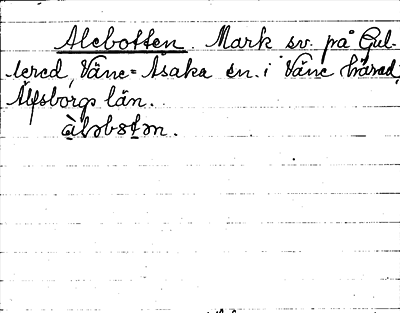 Alebotten. Mark sv. på Gul-
lered, Väne-Åsaka sn. i Väne härad,
Älfsborgs län.
àləbɔtən.